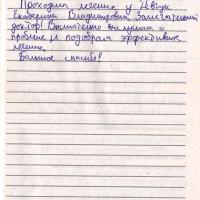 Проходила лечение у Левчук
Екатерины Владимировны. Замечательный
доктор! Внимательно выслушала о
проблеме и подобрала эффективное
лечение.
Большое спасибо!